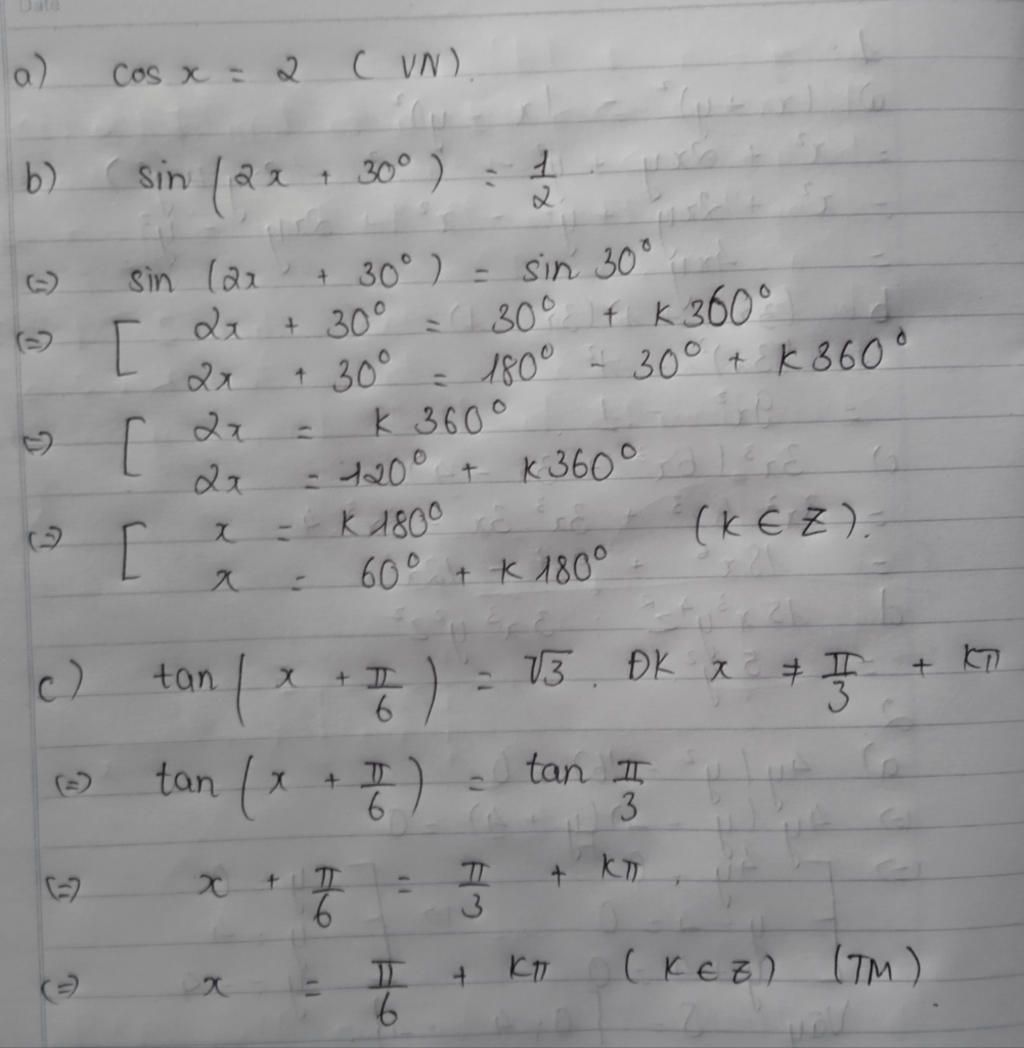 Date
a) cos x = 2 (VN).
b) sin(2x + 30°) = 1/2
(=) sin (2x + 30°) = sin 30°
(=) [ 2x + 30° = 30° + K360°
2x + 30° = 180° - 30° + K360°
(=) [ 2x = K 360°
2x = 120° + K360°
(=) [ x = K180° (K ∈ Z).
x = 60° + K180°
c) tan(x + π/6) = √3. ĐK x ≠ π/3 + Kπ
(=) tan(x + π/6) = tan π/3
(=) x + π/6 = π/3 + Kπ.
(=) x = π/6 + Kπ (K ∈ Z) (TM).